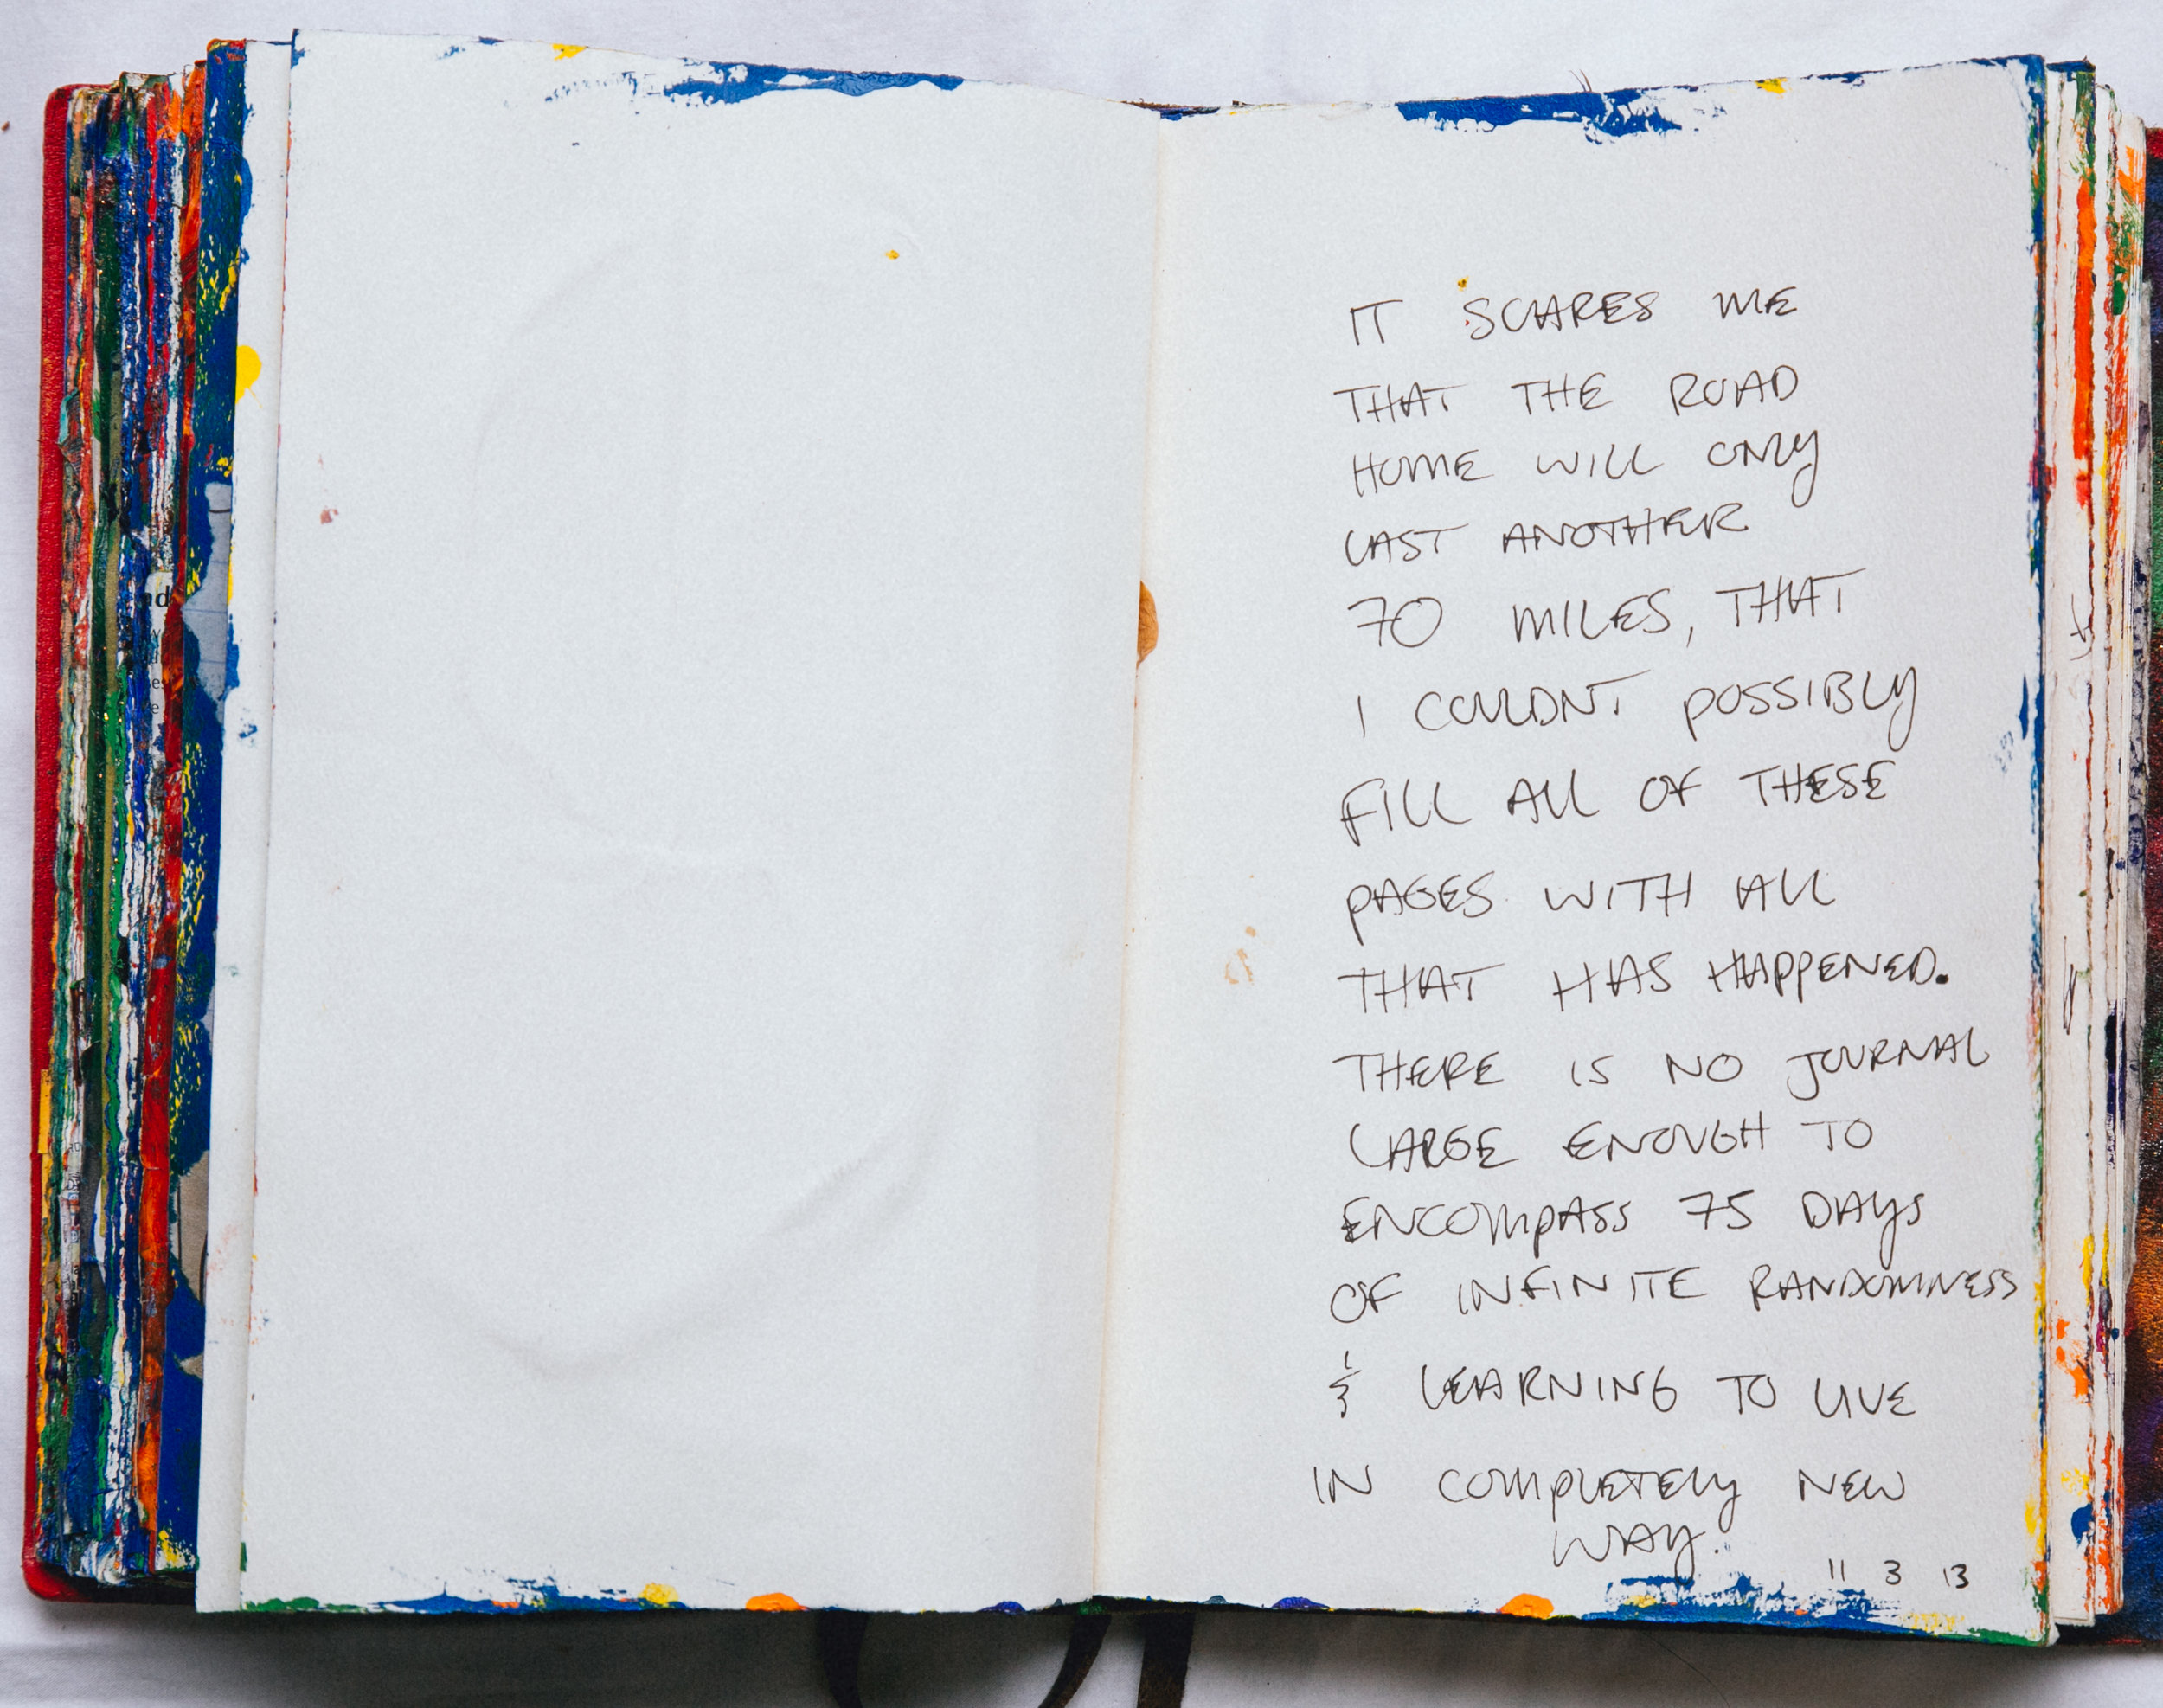 nd
IT SCARES ME
THAT THE ROAD
HOME WILL ONLY
LAST ANOTHER
70 MILES, THAT
I COULDNT POSSIBLY
FILL ALL OF THESE
PAGES WITH ALL
THAT HAS HAPPENED.
THERE IS NO JOURNAL
LARGE ENOUGH TO
ENCOMPASS 75 DAYS
OF INFINITE RANDOMNESS
& LEARNING TO LIVE
IN COMPLETELY NEW
WAY.
11 3 13